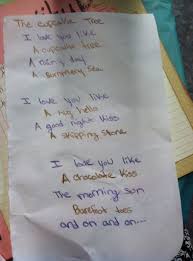 The cupcake Tree
I love you like
A cupcake tree
A rainy day
A summery Sea
I love you like
A big hello
A good night kiss
A skipping stone
I love you like
A chocolate kiss
The morning sun
Barefoot toes
and on and on...